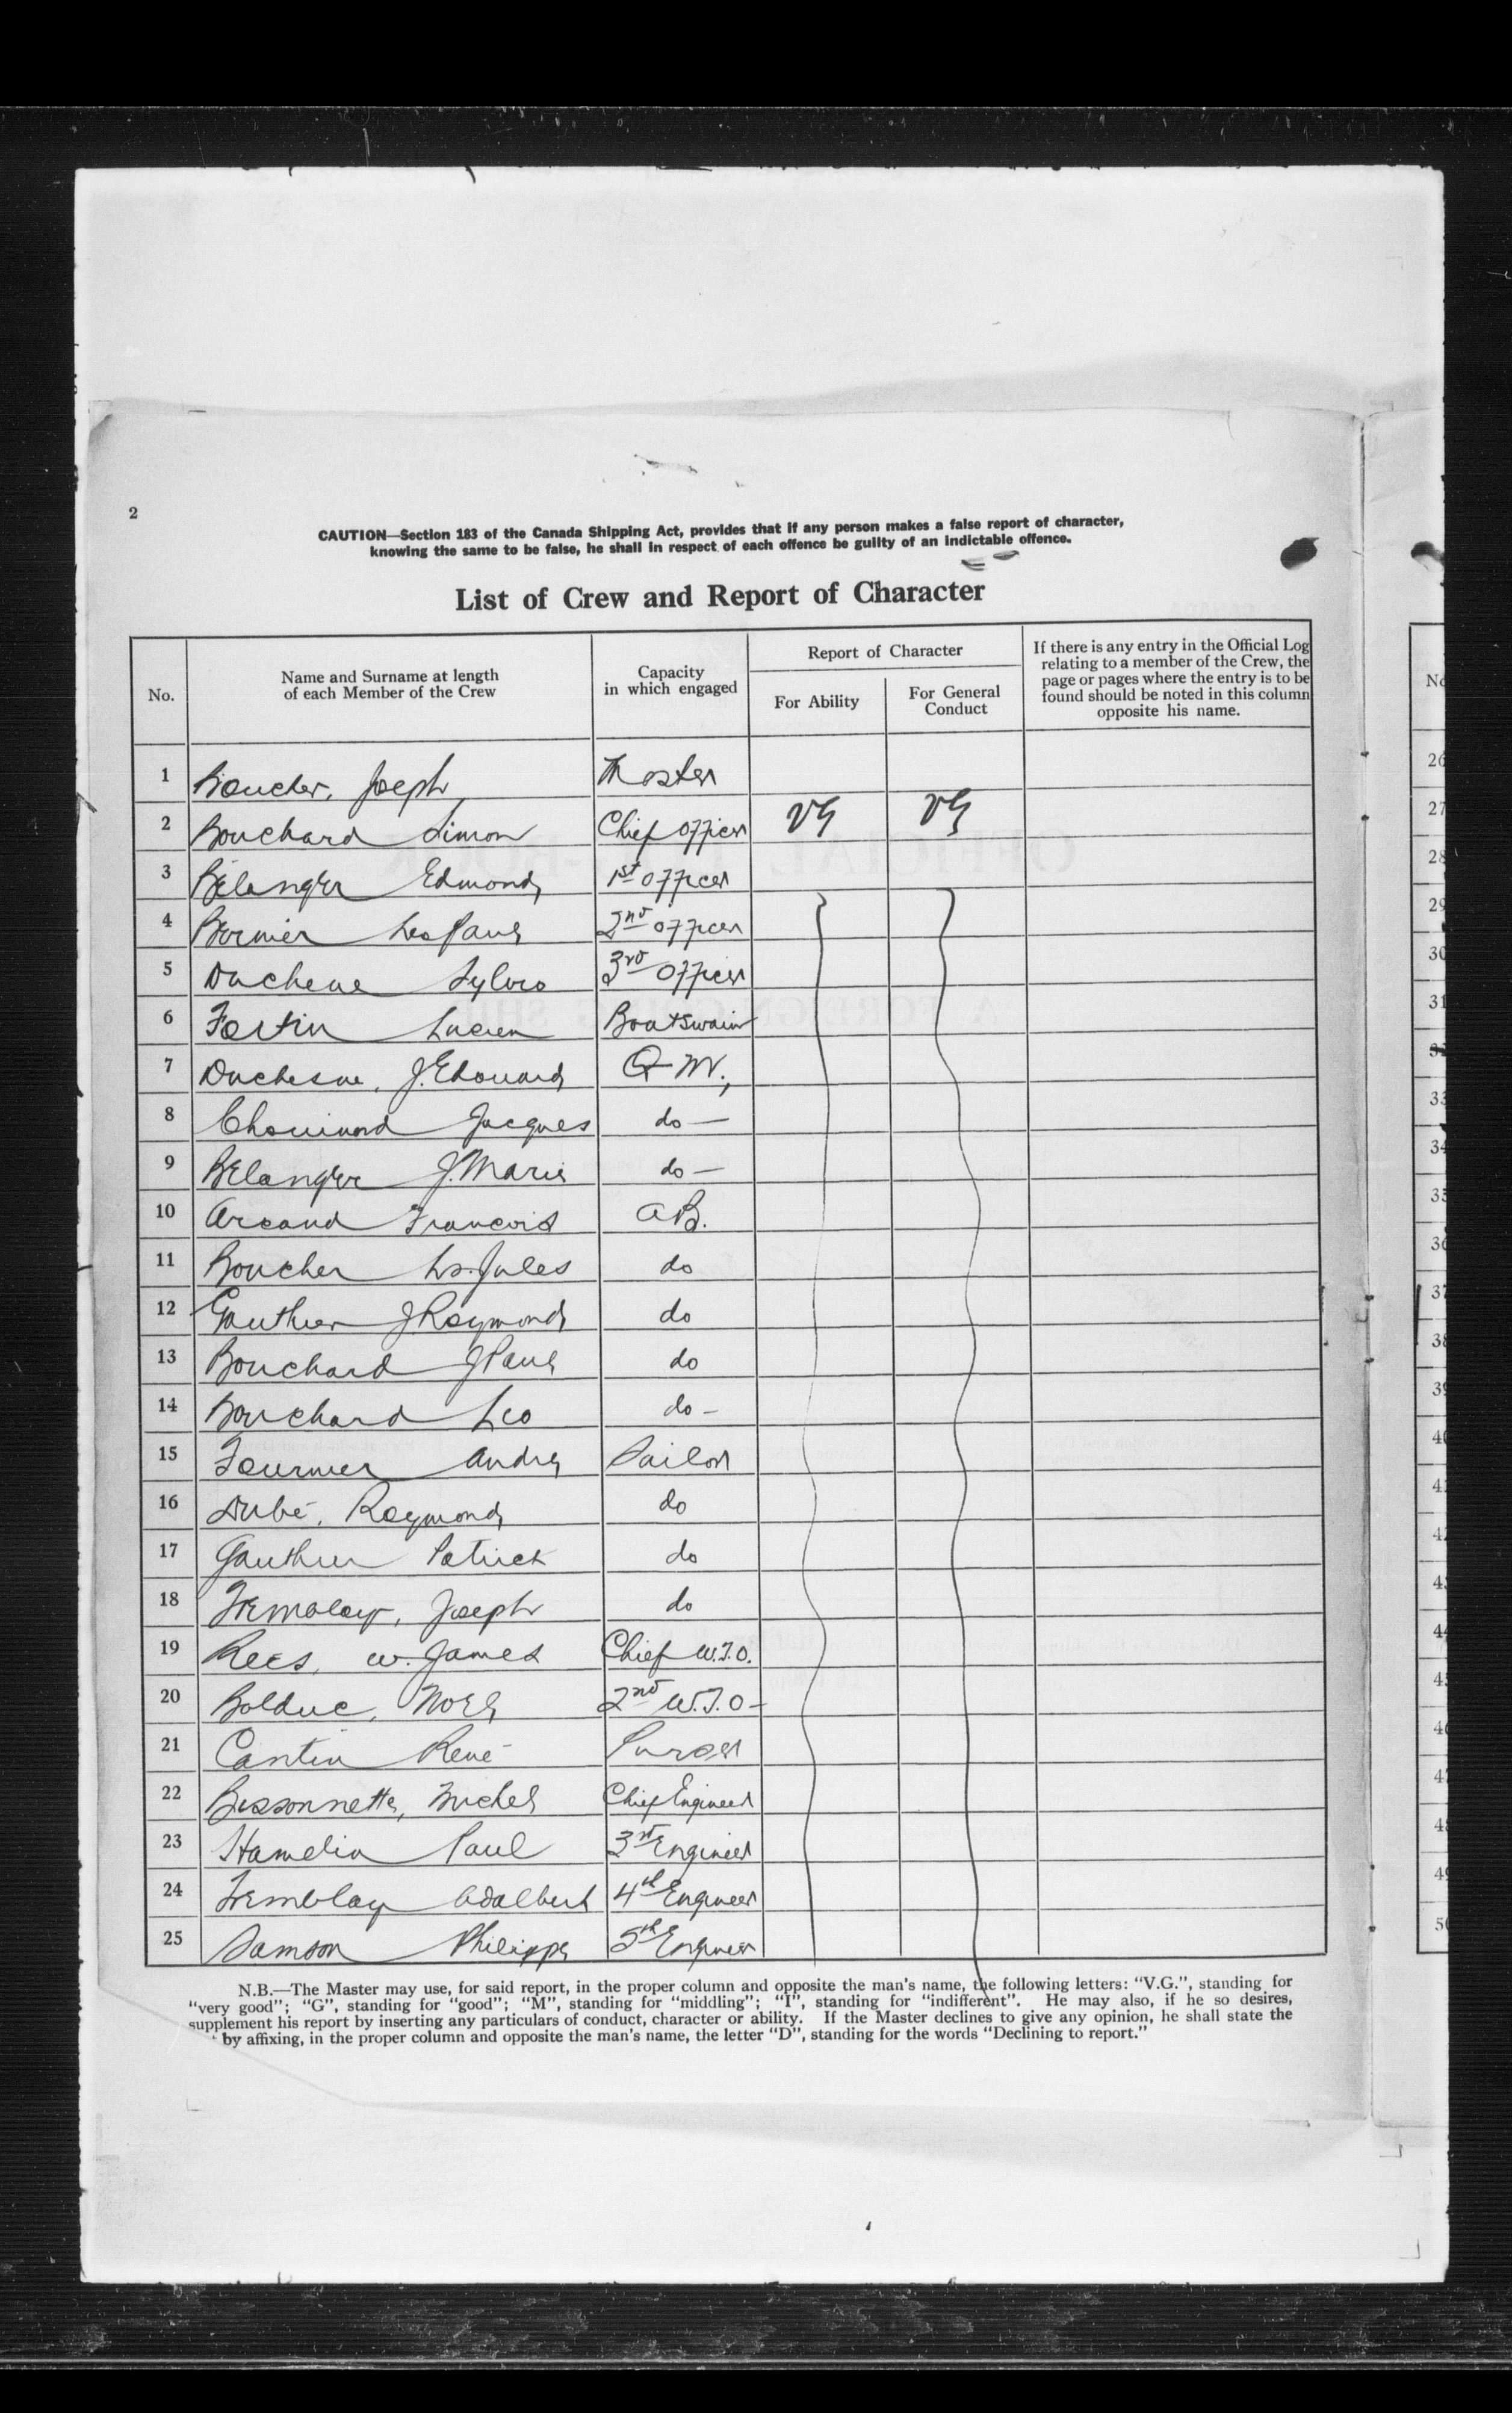 2
CAUTION—Section 183 of the Canada Shipping Act, provides that if any person makes a false report of character,
knowing the same to be false, he shall in respect of each offence be guilty of an indictable offence.
List of Crew and Report of Character
No.
Name and Surname at length
of each Member of the Crew
Capacity
in which engaged
Report of Character
For Ability
For General
Conduct
If there is any entry in the Official Log
relating to a member of the Crew, the
page or pages where the entry is to be
found should be noted in this column
opposite his name.
1 Boucher, Joseph Master
2 Bouchard Simon Chief Officer VG VG
3 Bélanger Edmond 1st Officer
4 Bernier Leo Paul 2nd Officer
5 Duchene Sylvio 3rd Officer
6 Fortin Lucien Boatswain
7 Duchesne, J. Edouard Q-M.,
8 Chouinard Jacques do —
9 Bélanger J. Marie do —
10 Arcand Francois A.B.
11 Boucher Ls. Jules do
12 Gauthier J Raymond do
13 Bouchard J Paul do
14 Bouchard Leo do -
15 Fournier André Sailor
16 Dubé, Raymond do
17 Gauthier Patrick do
18 Tremblay, Joseph do
19 Rees, W. James Chief W.T.O.
20 Bolduc, Noel 2nd W.T.O -
21 Cantin René Purser
22 Bissonnette, Michel Chief Engineer
23 Hamelin Paul 3rd Engineer
24 Tremblay Adalbert 4th Engineer
25 Samson Philippe 5th Engineer
N.B.—The Master may use, for said report, in the proper column and opposite the man's name, the following letters: "V.G.", standing for
"very good"; "G", standing for "good"; "M", standing for "middling"; "I", standing for "indifferent". He may also, if he so desires,
supplement his report by inserting any particulars of conduct, character or ability. If the Master declines to give any opinion, he shall state the
by affixing, in the proper column and opposite the man's name, the letter "D", standing for the words "Declining to report."
26
27
28
29
30
31
33
34
35
36
37
38
39
40
41
42
44